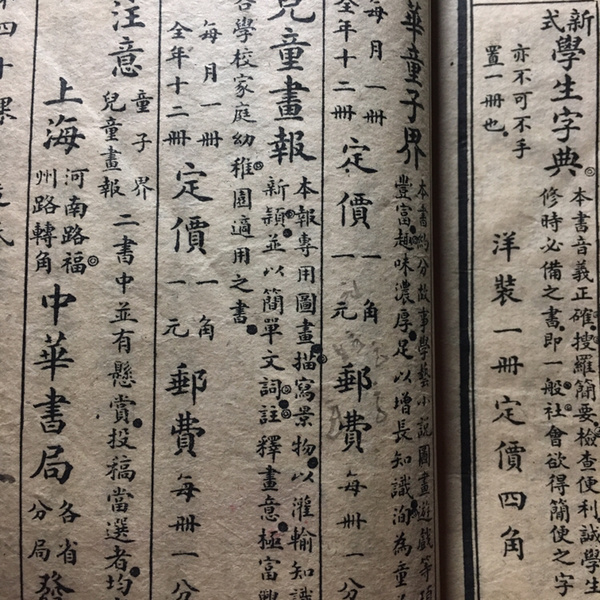 新式學生字典
本書音義正確搜羅簡要檢查便利誠學生
修時必備之書即一般社會欲得簡便之字
亦不可不手
置一冊也
洋裝一冊定價四角
華童子界
本書約分故事學藝小說圖畫遊戲等項
豐富趣味濃厚足以增長知識洵為童
每月一冊
全年十二冊
定價
一角
一元
郵費每冊一分
兒童畫報
本報專用圖畫描寫景物以灌輸知識
新穎並以簡單文詞註釋畫意極富興
各學校家庭幼稚園適用之書
每月一冊
全年十二冊
定價
一角
一元
郵費每冊一分
注意
童子界
兒童畫報
二書中並有懸賞投稿當選者均
上海
河南路福
州路轉角
中華書局
各省
分局
發
四十課